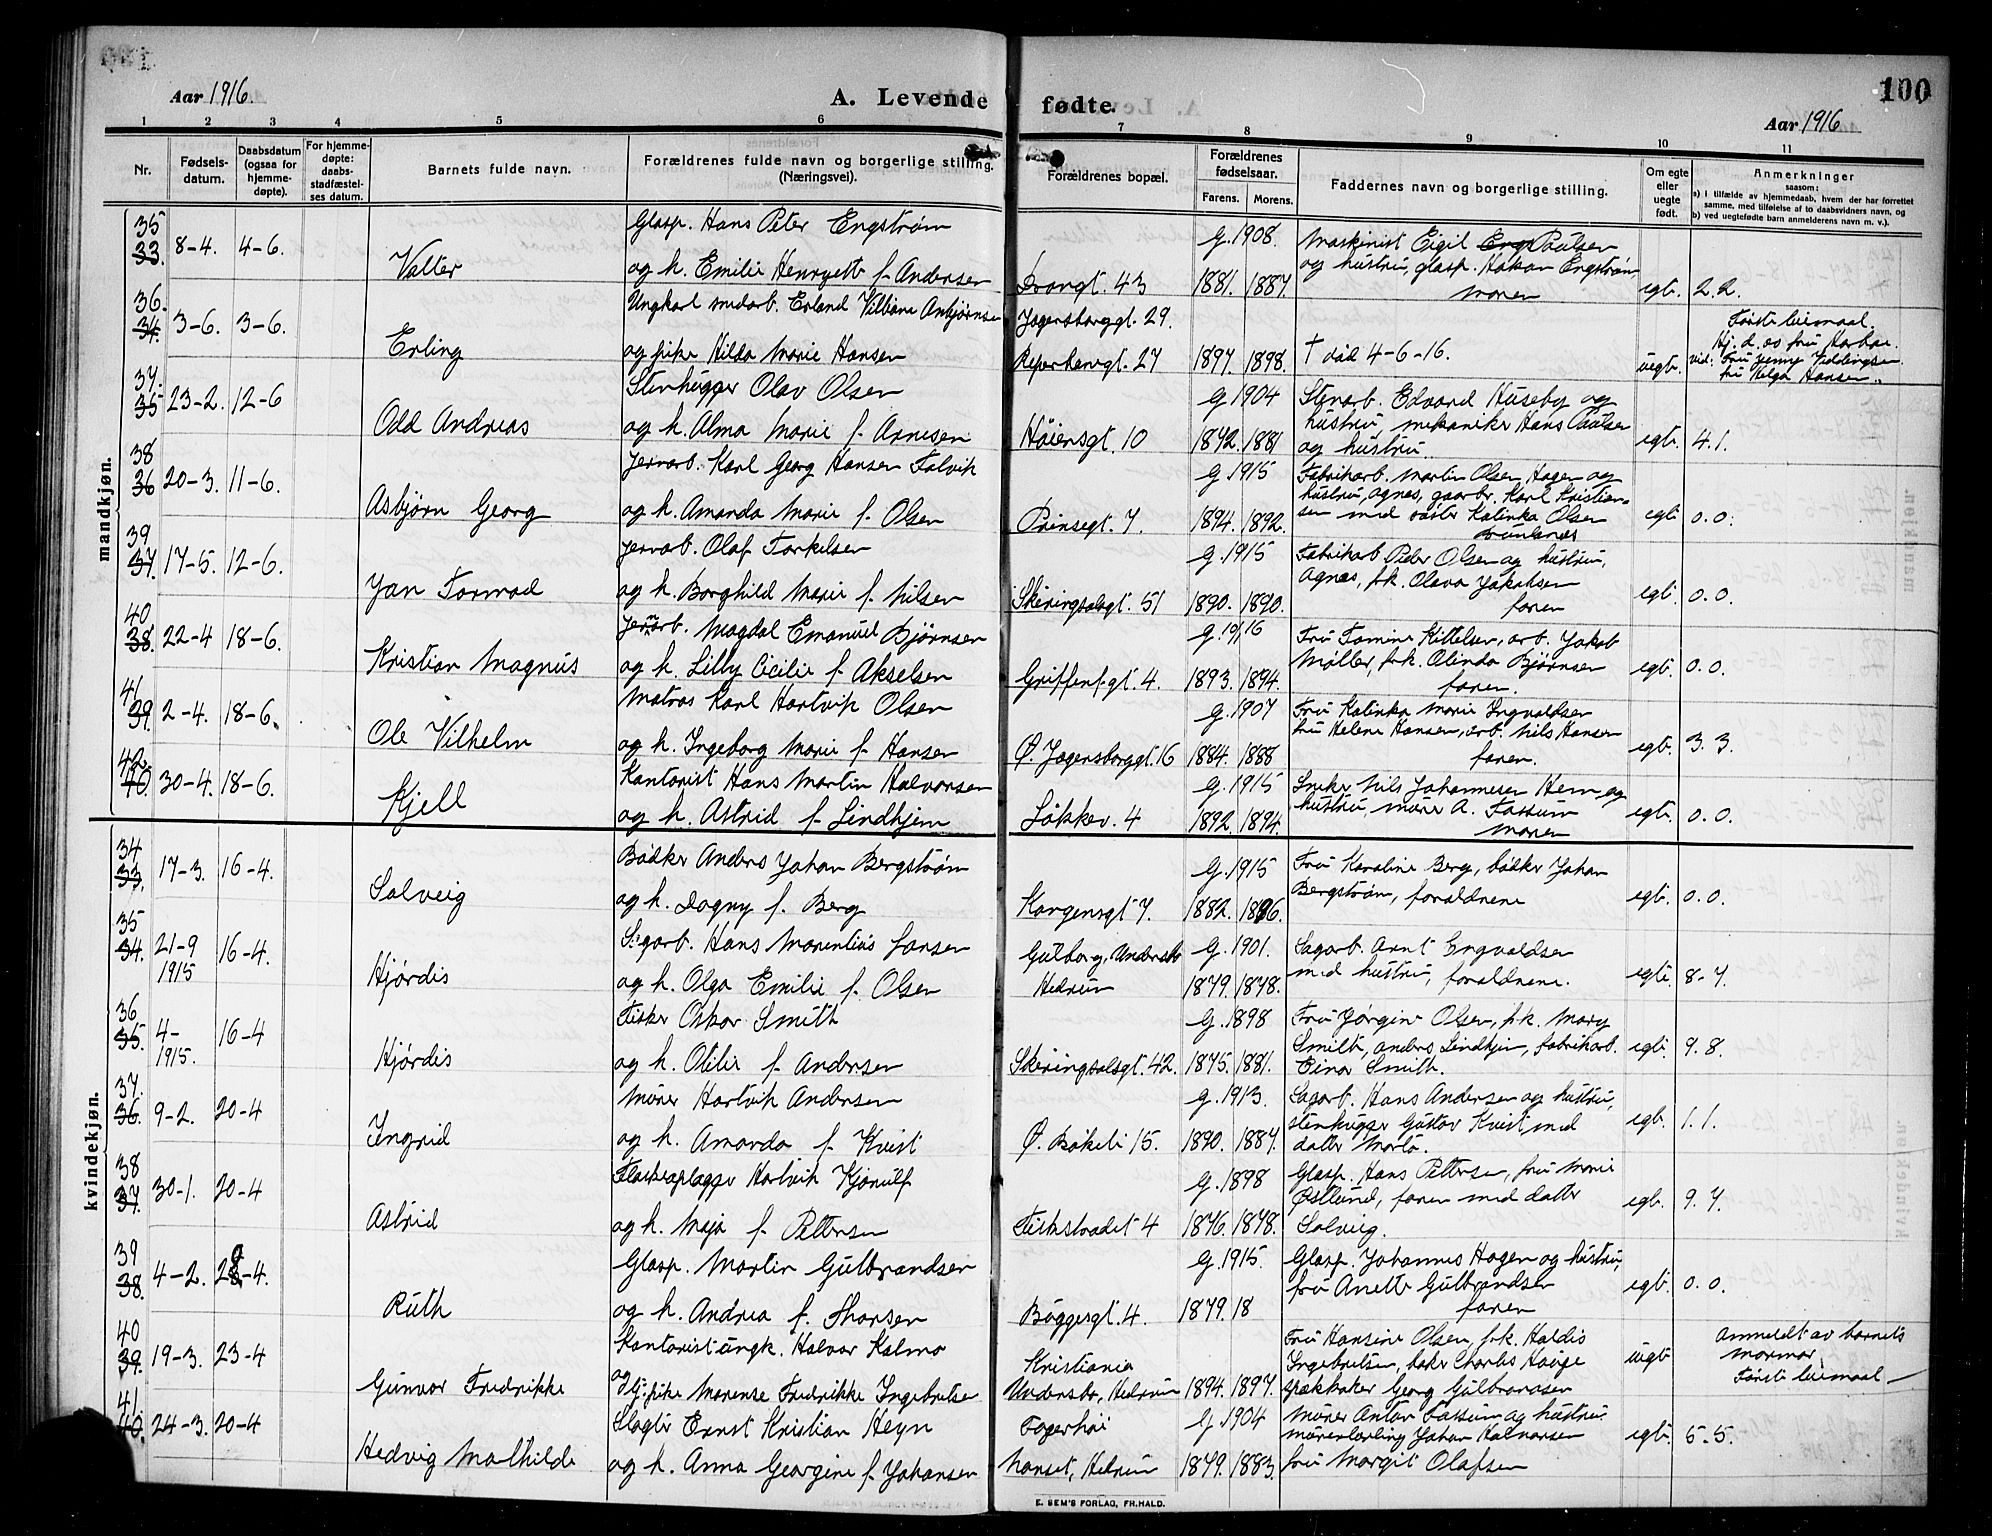 Aar 1916.
A. Levende fødte.
100
Aar 1916
1 2 3 4 5 6 7 8 9 10 11
Nr.
Fødsels-
datum.
Daabsdatum
(ogsaa for
hjemme-
døpte).
For hjemme-
døpte:
daabs-
stadfæstel-
ses datum.
Barnets fulde navn.
Forældrenes fulde navn og borgerlige stilling.
(Næringsvei).
Forældrenes bopæl.
Forældrenes
fødselsaar.
Farens. Morens.
Faddernes navn og borgerlige stilling.
Om egte
eller
uegte
født.
Anmerkninger
saasom:
a) i tilfælde av hjemmedaab, hvem der har forrettet
samme, med tilføielse af to daabsvidners navn, og
b) ved uegtefødte barn anmelderens navn m. v.).
mandkjøn.
35 Glasp. Hans Peter Engstrøm g. 1908. Maskinist Eigil Eng Paulsen
33. 8-4. 4-6. Valter og h. Emilie Henryette f. Andersen Drongt. 43 1881. 1887. og hustru, glasp. Håkan Engstrøm, moren egt. 2.2.
36. Ungkarl smedarb. Erland Vilhere Anbjørnsen Jegersborggt. 29. Første leiemaal.
34. 3-6. 3-6. Erling og pike Hilda Marie Hansen Reperbanegt. 27 1897. 1898. † død 4-6-16. uegt. Hj. d. av fru
vid: Fru Jenny
fru Helga Hansen.
37. Stenhugger Olav Olsen g. 1904 Stenarb. Edvard Huseby og
35 23-2. 12-6 Odd Andreas og h. Alma Marie f. Arnesen Høiensgt. 10 1872. 1881 hustru, mekaniker Hans Paulsen
og hustru. egt. 4.1.
38 Jernarb. Karl Georg Hansen Falvik g. 1915 Fabrikarb. Martin Olsen Hagen og
36 20-3. 11-6. Asbjørn Georg og h. Amanda Marie f. Olsen Prinsegt. 7. 1894. 1892. hustru, Agnes, gaarbr. Karl Kristian-
sen med søster Kalinka Olsen egt 0.0.
39 Jernarb. Olaf Torkelsen g. 1915 Fabrikarb. Peder Olsen og hustru,
37. 17-5. 12-6. Jan Tormod og h. Borghild Marie f. Nilsen Skiringsalsgt. 51 1890. 1890. Agnes, frk. Olava Jakobsen
faren egt. 0.0.
40 Jernarb. Magdal Emanuel Bjørnsen g. 1916 Fru Tomine Kittelsen, arb. Jakob
38. 22-4 18-6. Kristian Magnus og h. Lilly Cicilie f. Akselsen Griffenf.gt. 4. 1893. 1894. Møller, frk. Olinda Bjørnsen
faren. egt. 0.0.
41 Matros Karl Hartvik Olsen g. 1907 Fru Kalinka Marie Ingvaldsen
39. 2-4. 18-6. Ole Vilhelm og h. Ingeborg Marie f. Hansen Ø. Jegersborggt. 16 1884. 1888 fru Helene Hansen, arb. Nils Hansen
faren. egt. 3.3.
42. Kontorist Hans Martin Halvorsen g. 1915 Smker Nils Johannesen Hem og
40. 30-4. 18-6. Kjell og h. Astrid f. Lindhjem Løkkev. 4 1892. 1894. hustru, murer A. Fossum
moren egt. 0.0.
kvindekjøn.
34 Bødker Anders Johan Bergstrøm g. 1915 Fru Karoline Berg, bødker Johan
33. 17-3. 16-4. Solveig og h. Dagny f. Berg Kongensgt 7. 1882. 1896. Bergstrøm, forældrene egt. 0.0.
35 Sagarb. Hans Morentius Jansen Gulborg, Undersbo g. 1901. Sagarb. Arnt Engvaldsen
34. 21-9
1915 16-4. Hjørdis og h. Olga Emilie f. Olsen Hedrum 1879. 1878. med hustru, forældrene. egt. 8-7.
36 Fisker Oskar Smith g. 1898 Fru Jørgine Olsen, frk. Mary
35. 4-
1915. 16-4 Hjørdis og h. Otilie f. Andersen Skiringsalsgt. 42. 1875. 1881. Smith, Anders Lindhjem, fabrikarb.
Einar Smith. egt. 9.8.
37. Murer Hartvik Andersen g. 1913. Sagarb. Hans Andersen og hustru,
36. 9-2. 20-4 Ingrid og h. Amanda f. Kvist Ø. Bøkeli 15. 1890. 1887. stenhugger Gustav Kvist med
datter Marta. egt. 1.1.
38 Hartvik Kjønulf g. 1898 Glasp. Hans Pettersen, fru Marie
37. 30-1. 20-4 Astrid og h. Maja f. Pettersen 4 1876. 1878. Østlund, faren med datter
Solveig. egt. 9.7.
39 Glasp. Martin Gulbrandsen g. 1915. Glasp. Johannes Hagen og hustru,
38. 4-2. 28-4. Ruth og h. Andrea f. Thorsen Bøggesgt. 4. 1879. 18 fru Anette Gulbrandsen
faren egt. 0.0.
40 Kontorist ungk. Halvor Kalmo Kristiania Fru Hansine Olsen, frk. Haldis Anmeldt av barnets
39. 19-3. 23-4 Gunvor Fredrikke og tj. pike Marense Fredrikke Ingebretsen Undersbo, Hedrum 1894. 1897. Ingebretsen, baker Charles Hauge
Georg Gulbrandsen uegt mormor.
Første leiemaal
41. Slagter Ernst Kristian Heyn Fagerhøi g. 1904 Murer Anton Fossum og hustru
40. 24-3. 20-4 Hedvig Mathilde og h. Anna Georgine f. Johansen Nanset, Hedrum 1879. 1883. murerlærling Johan Halvorsen
fru Margit Olafsen egt. 5.5.
E. SEM'S FORLAG, FR.HALD.